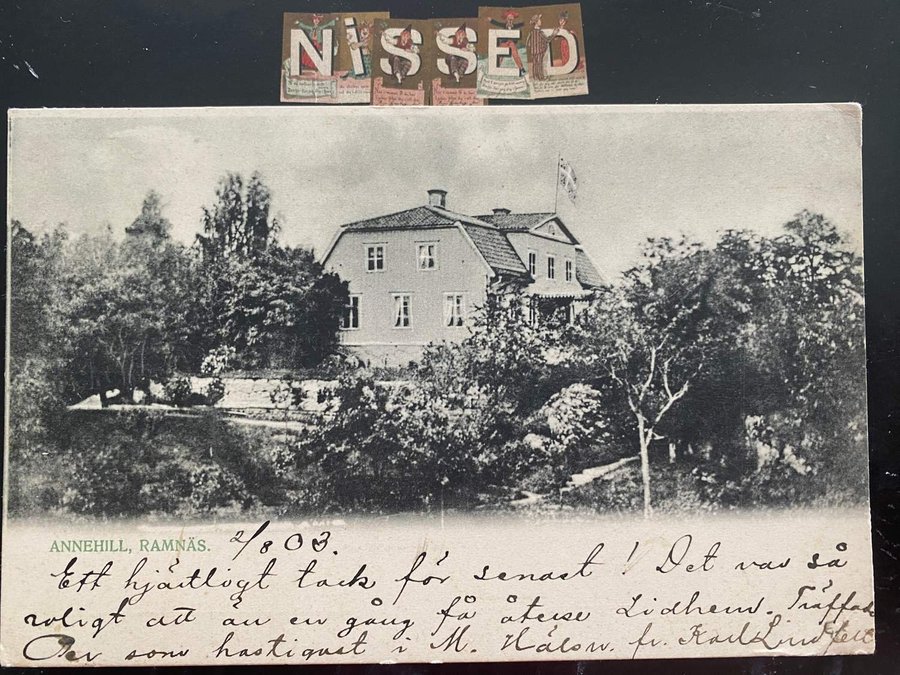 NiSSED
ANNEHILL, RAMNÄS. 2/8 03.
Ett hjärtligt tack för senast! Det var så
roligt att än en gång få återse Lidhem. Träffade
Per som hastigast i M. Hälsn. fr. Karl Lindfelt